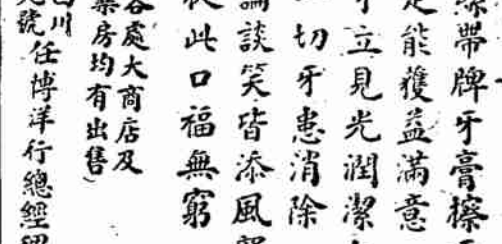 絲帶牌牙膏擦
足能獲益滿意
立見光潤潔
一切牙患消除
論談笑皆添風
從此口福無窮
各處大商店及
藥房均有出售
四川
號任博洋行總經理